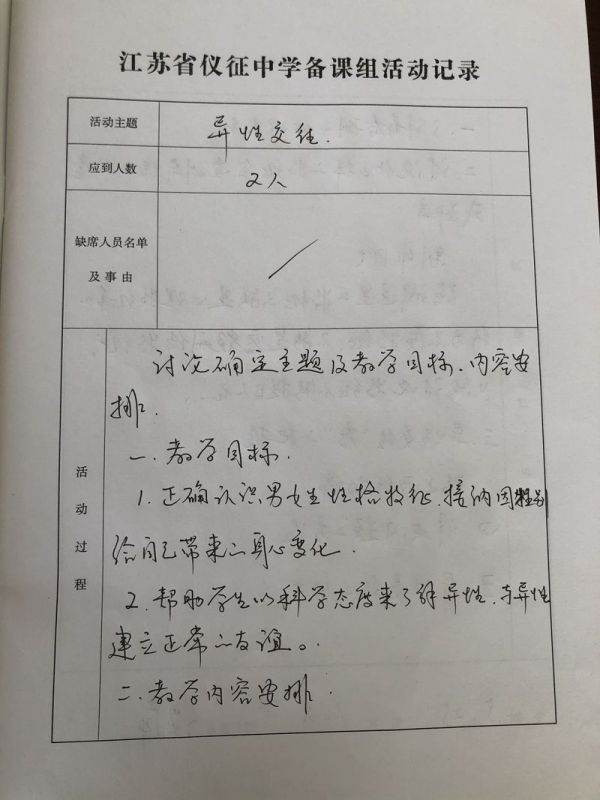 江苏省仪征中学备课组活动记录
活动主题
异性交往.
应到人数
2人
缺席人员名单
及事由
活动过程
讨论确定主题及教学目标、内容安
排.
一. 教学目标.
1. 正确认识男女生性格特征,接纳因性别
给自己带来的身心变化.
2. 帮助学生以科学态度来了解异性,与异性
建立正常的友谊。
二. 教学内容安排.